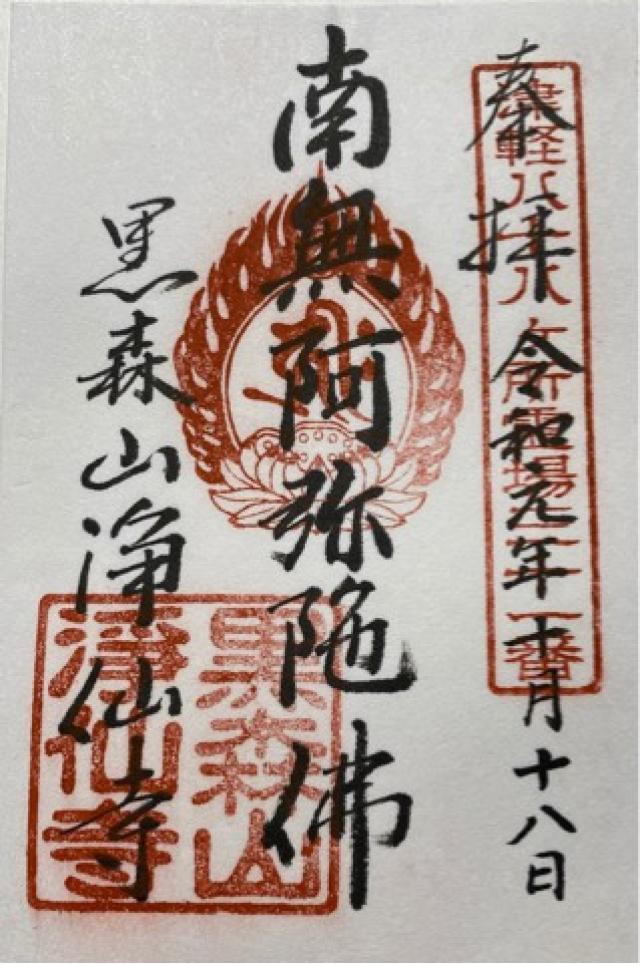 奉拝 令和元年十月十八日
津軽八十八ヶ所霊場
南無阿弥陀佛
黒森山浄仙寺
黒森山
浄仙寺